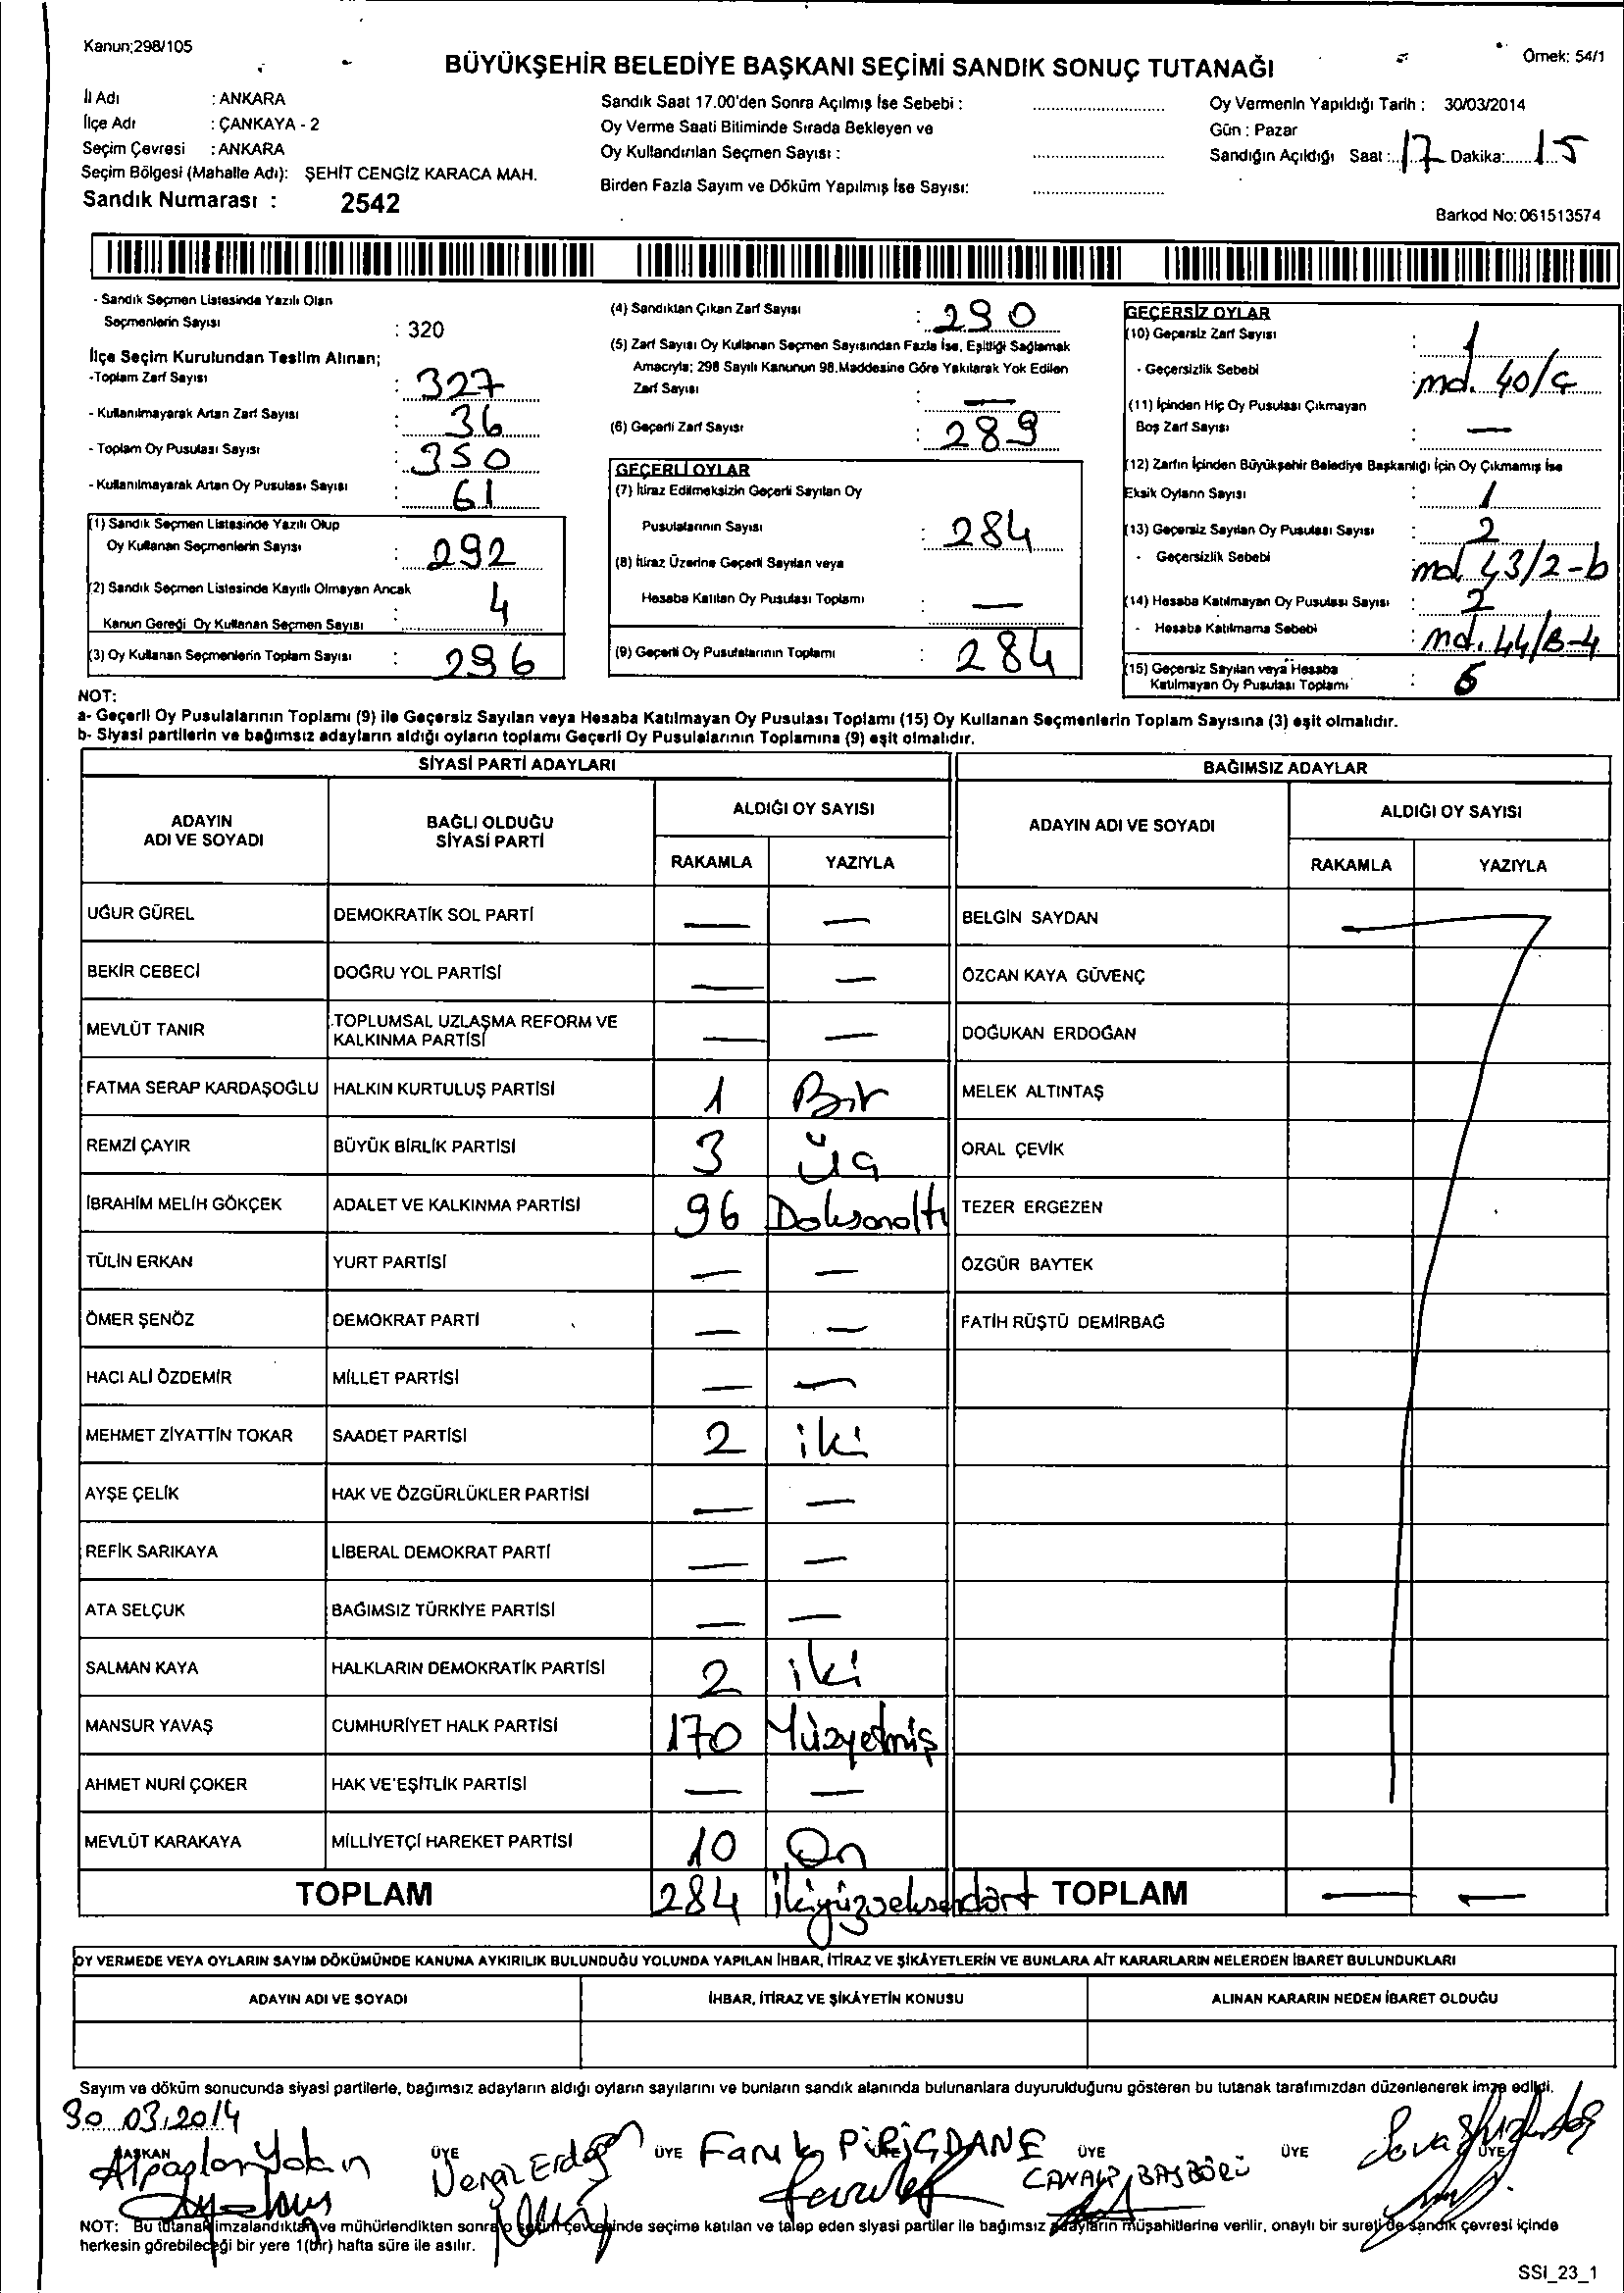 Kanun;298/105
Örnek: 54/1
BÜYÜKŞEHİR BELEDİYE BAŞKANI SEÇİMİ SANDIK SONUÇ TUTANAĞI
İl Adı : ANKARA
İlçe Adı : ÇANKAYA - 2
Seçim Çevresi : ANKARA
Seçim Bölgesi (Mahalle Adı): ŞEHİT CENGİZ KARACA MAH.
Sandık Numarası : 2542
Sandık Saat 17.00'den Sonra Açılmış İse Sebebi :
Oy Verme Saati Bitiminde Sırada Bekleyen ve
Oy Kullandırılan Seçmen Sayısı :
Birden Fazla Sayım ve Döküm Yapılmış İse Sayısı:
Oy Vermenin Yapıldığı Tarih : 30/03/2014
Gün : Pazar
Sandığın Açıldığı Saat : 17 Dakika: 15
Barkod No: 061513574
- Sandık Seçmen Listesinde Yazılı Olan
Seçmenlerin Sayısı : 320
İlçe Seçim Kurulundan Teslim Alınan;
-Toplam Zarf Sayısı : 327
- Kullanılmayarak Artan Zarf Sayısı : 36
- Toplam Oy Pusulası Sayısı : 350
- Kullanılmayarak Artan Oy Pusulası Sayısı : 61
(1) Sandık Seçmen Listesinde Yazılı Olup
Oy Kullanan Seçmenlerin Sayısı : 292
(2) Sandık Seçmen Listesinde Kayıtlı Olmayan Ancak
Kanun Gereği Oy Kullanan Seçmen Sayısı : 4
(3) Oy Kullanan Seçmenlerin Toplam Sayısı : 296
(4) Sandıktan Çıkan Zarf Sayısı : 290
(5) Zarf Sayısı Oy Kullanan Seçmen Sayısından Fazla İse, Eşitliği Sağlamak
Amacıyla; 298 Sayılı Kanunun 98.Maddesine Göre Yakılarak Yok Edilen
Zarf Sayısı : —
(6) Geçerli Zarf Sayısı : 289
GEÇERLİ OYLAR
(7) İtiraz Edilmeksizin Geçerli Sayılan Oy
Pusulalarının Sayısı : 284
(8) İtiraz Üzerine Geçerli Sayılan veya
Hesaba Katılan Oy Pusulası Toplamı : —
(9) Geçerli Oy Pusulalarının Toplamı : 284
GEÇERSİZ OYLAR
(10) Geçersiz Zarf Sayısı : 1
- Geçersizlik Sebebi : md. 40/ç
(11) İçinden Hiç Oy Pusulası Çıkmayan
Boş Zarf Sayısı : —
(12) Zarfın İçinden Büyükşehir Belediye Başkanlığı İçin Oy Çıkmamış İse
Eksik Oyların Sayısı : 1
(13) Geçersiz Sayılan Oy Pusulası Sayısı : 2
- Geçersizlik Sebebi md 43/2-b
(14) Hesaba Katılmayan Oy Pusulası Sayısı : 2
- Hesaba Katılmama Sebebi : md. 44/B-4
(15) Geçersiz Sayılan veya Hesaba
Katılmayan Oy Pusulası Toplamı :
NOT:
a- Geçerli Oy Pusulalarının Toplamı (9) ile Geçersiz Sayılan veya Hesaba Katılmayan Oy Pusulası Toplamı (15) Oy Kullanan Seçmenlerin Toplam Sayısına (3) eşit olmalıdır.
b- Siyasi partilerin ve bağımsız adayların aldığı oyların toplamı Geçerli Oy Pusulalarının Toplamına (9) eşit olmalıdır.
SİYASİ PARTİ ADAYLARI
ADAYIN ADI VE SOYADI BAĞLI OLDUĞU SİYASİ PARTİ ALDIĞI OY SAYISI
RAKAMLA YAZIYLA
UĞUR GÜREL DEMOKRATİK SOL PARTİ — —
BEKİR CEBECİ DOĞRU YOL PARTİSİ — —
MEVLÜT TANIR TOPLUMSAL UZLAŞMA REFORM VE
KALKINMA PARTİSİ — —
FATMA SERAP KARDAŞOĞLU HALKIN KURTULUŞ PARTİSİ 1 Bir
REMZİ ÇAYIR BÜYÜK BİRLİK PARTİSİ 3 Üç
İBRAHİM MELİH GÖKÇEK ADALET VE KALKINMA PARTİSİ 96 Doksanaltı
TÜLİN ERKAN YURT PARTİSİ — —
ÖMER ŞENÖZ DEMOKRAT PARTİ — —
HACI ALİ ÖZDEMİR MİLLET PARTİSİ — —
MEHMET ZİYATTİN TOKAR SAADET PARTİSİ 2 iki
AYŞE ÇELİK HAK VE ÖZGÜRLÜKLER PARTİSİ — —
REFİK SARIKAYA LİBERAL DEMOKRAT PARTİ — —
ATA SELÇUK BAĞIMSIZ TÜRKİYE PARTİSİ — —
SALMAN KAYA HALKLARIN DEMOKRATİK PARTİSİ 2 iki
MANSUR YAVAŞ CUMHURİYET HALK PARTİSİ 170 Yüzyetmiş
AHMET NURİ ÇOKER HAK VE'EŞİTLİK PARTİSİ — —
MEVLÜT KARAKAYA MİLLİYETÇİ HAREKET PARTİSİ 10 On
TOPLAM 284 ikiyüzseksendört
BAĞIMSIZ ADAYLAR
ADAYIN ADI VE SOYADI ALDIĞI OY SAYISI
RAKAMLA YAZIYLA
BELGİN SAYDAN
ÖZCAN KAYA GÜVENÇ
DOĞUKAN ERDOĞAN
MELEK ALTINTAŞ
ORAL ÇEVİK
TEZER ERGEZEN
ÖZGÜR BAYTEK
FATİH RÜŞTÜ DEMİRBAĞ
TOPLAM — —
OY VERMEDE VEYA OYLARIN SAYIM DÖKÜMÜNDE KANUNA AYKIRILIK BULUNDUĞU YOLUNDA YAPILAN İHBAR, İTİRAZ VE ŞİKÂYETLERİN VE BUNLARA AİT KARARLARIN NELERDEN İBARET BULUNDUKLARI
ADAYIN ADI VE SOYADI İHBAR, İTİRAZ VE ŞİKÂYETİN KONUSU ALINAN KARARIN NEDEN İBARET OLDUĞU
Sayım ve döküm sonucunda siyasi partilerle, bağımsız adayların aldığı oyların sayılarını ve bunların sandık alanında bulunanlara duyurulduğunu gösteren bu tutanak tarafımızdan düzenlenerek imza edildi.
30.03.2014
BAŞKAN ÜYE ÜYE ÜYE ÜYE ÜYE
Faruk PİRİÇDANE
NOT: Bu tutanak imzalandıktan ve mühürlendikten sonra o seçim çevresinde seçime katılan ve talep eden siyasi partiler ile bağımsız adayların müşahitlerine verilir, onaylı bir sureti de sandık çevresi içinde
herkesin görebileceği bir yere 1(bir) hafta süre ile asılır.
SSI_23_1